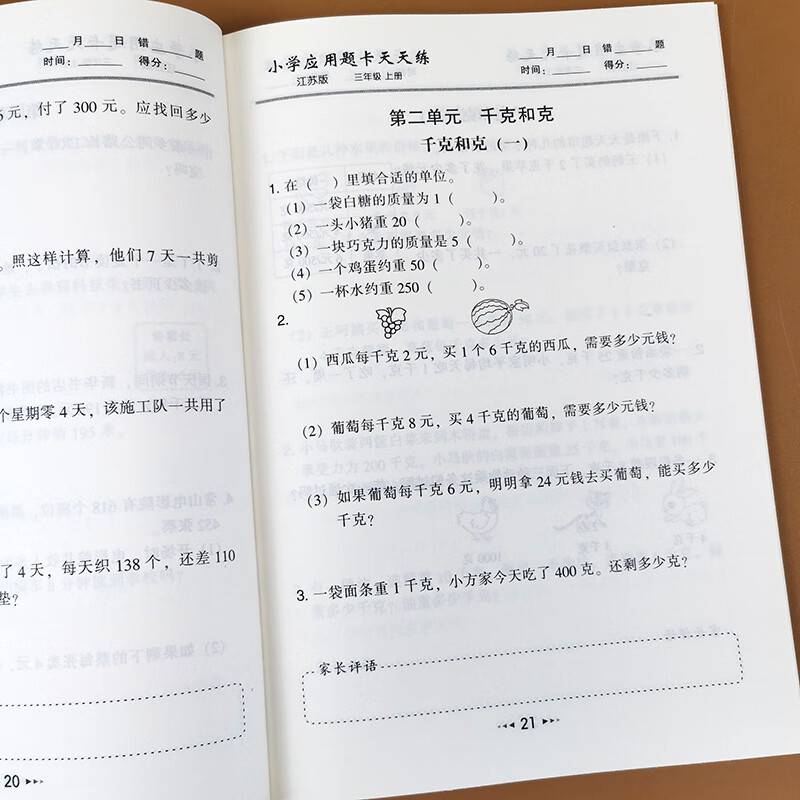 ___月___日 错___题
时间：___ 得分：___
5元，付了 300 元。应找回多少
。照这样计算，他们 7 天一共剪
个星期零 4 天，该施工队一共用了
了 4 天，每天织 138 个，还差 110
垫？
20
小学应用题卡天天练
江苏版 三年级 上册
___月___日 错___题
时间：___ 得分：___
第二单元 千克和克
千克和克（一）
1. 在（ ）里填合适的单位。
（1）一袋白糖的质量为 1（ ）。
（2）一头小猪重 20（ ）。
（3）一块巧克力的质量是 5（ ）。
（4）一个鸡蛋约重 50（ ）。
（5）一杯水约重 250（ ）。
2.
（1）西瓜每千克 2 元，买 1 个 6 千克的西瓜，需要多少元钱？
（2）葡萄每千克 8 元，买 4 千克的葡萄，需要多少元钱？
（3）如果葡萄每千克 6 元，明明拿 24 元钱去买葡萄，能买多少
千克？
3. 一袋面条重 1 千克，小方家今天吃了 400 克。还剩多少克？
家长评语
21